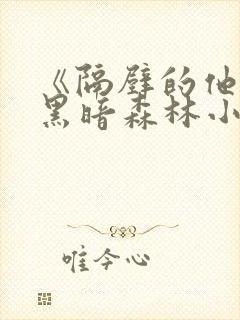 《隔壁的他
黑暗森林小
唯今心